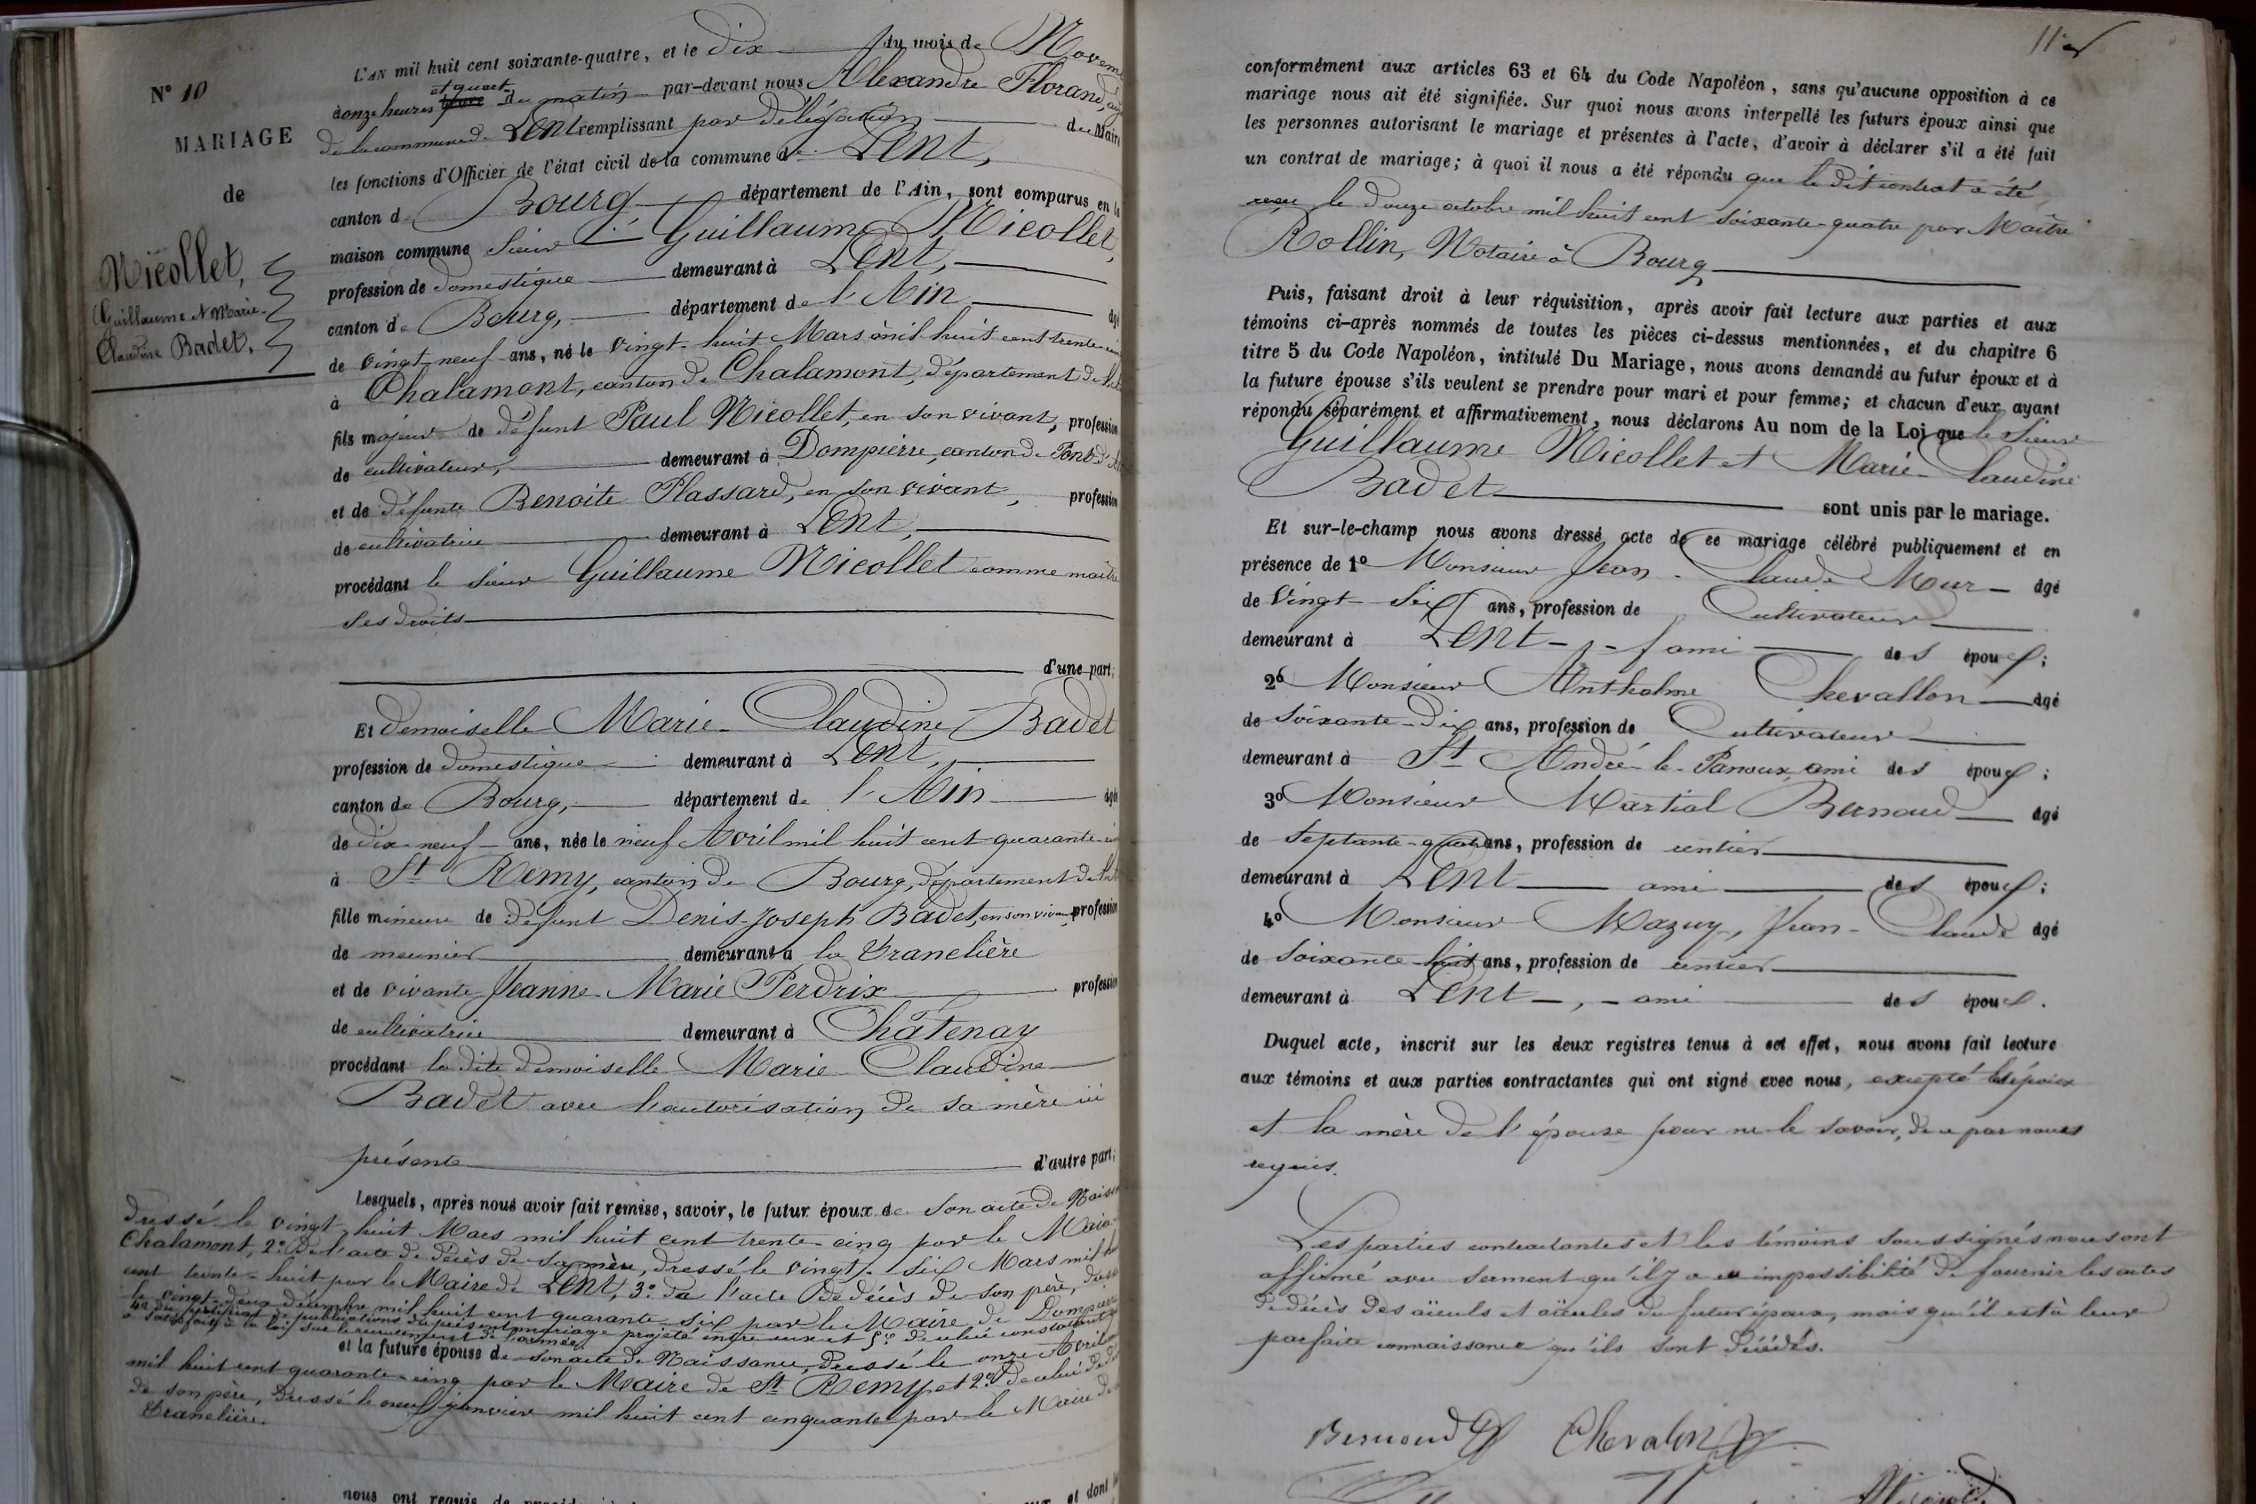 N° 10
MARIAGE
de
Nicollet,
Guillaume et Marie-
Claudine Badet.
L'AN mil huit cent soixante-quatre, et le dix du mois de Novem
et quart
à onze heures du matin par-devant nous Alexandre Florand,
de la commune de Lent remplissant par délégation du Maire
les fonctions d'Officier de l'état civil de la commune de Lent,
canton d Bourg département de l'Ain, sont comparus en la
maison commune Sieur Guillaume Nicollet,
profession de domestique demeurant à Lent,
canton de Bourg, département de l'Ain âgé
de vingt-neuf ans, né le vingt-huit Mars mil huit cent trente-
à Chalamont, canton de Chalamont, département de
fils majeur de défunt Paul Nicollet, en son vivant, profession
de cultivateur, demeurant à Dompierre, canton de Pont d'
et de défunte Benoite Plassard, en son vivant, profession
de cultivatrice demeurant à Lent,
procédant le sieur Guillaume Nicollet comme maître
ses droits
d'une part;
Et demoiselle Marie-Claudine Badet
profession de domestique demeurant à Lent,
canton de Bourg, département de l'Ain âgée
de dix-neuf ans, née le neuf Avril mil huit cent quarante-
à St Remy, canton de Bourg, département de
fille mineure de défunt Denis-Joseph Badet, en son vivant, profession
de meunier demeurant à la Tranclière
et de vivante Jeanne-Marie Perdrix profession
de cultivatrice demeurant à Châtenay
procédant la dite demoiselle Marie-Claudine
Badet avec l'autorisation de sa mère ici
présente d'autre part;
Lesquels, après nous avoir fait remise, savoir, le futur époux de son acte de Naiss
dressé le vingt-huit Mars mil huit cent trente-cinq par le Maire
Chalamont, 2° de l'acte de décès de sa mère, dressé le vingt-six Mars mil h
cent trente-huit par le Maire de Lent, 3° de l'acte de décès de son père, dressé
le vingt-deux décembre mil huit cent quarante-six par le Maire de Dompierre
4° du certificat de publications du présent mariage projeté entre eux et 5° de celui constatant
a satisfait à la loi sur le recrutement de l'armée.
et la future épouse de son acte de Naissance, dressé le onze Avril
mil huit cent quarante-cinq par le Maire de St Remy et 2° de celui de
de son père, dressé le neuf janvier mil huit cent cinquante par le Maire de
Tranclière.
nous ont requis de et dont
11
conformément aux articles 63 et 64 du Code Napoléon, sans qu'aucune opposition à ce
mariage nous ait été signifiée. Sur quoi nous avons interpellé les futurs époux ainsi que
les personnes autorisant le mariage et présentes à l'acte, d'avoir à déclarer s'il a été fait
un contrat de mariage; à quoi il nous a été répondu que le dit contrat a été
reçu le douze octobre mil huit cent soixante-quatre par Maître
Rollin, Notaire à Bourg
Puis, faisant droit à leur réquisition, après avoir fait lecture aux parties et aux
témoins ci-après nommés de toutes les pièces ci-dessus mentionnées, et du chapitre 6
titre 5 du Code Napoléon, intitulé Du Mariage, nous avons demandé au futur époux et à
la future épouse s'ils veulent se prendre pour mari et pour femme; et chacun d'eux ayant
répondu séparément et affirmativement, nous déclarons Au nom de la Loi que le Sieur
Guillaume Nicollet et Marie-Claudine
Badet sont unis par le mariage.
Et sur-le-champ nous avons dressé acte de ce mariage célébré publiquement et en
présence de 1° Monsieur Jean-Claude Mur âgé
de vingt-six ans, profession de Cultivateur
demeurant à Lent, ami des époux;
2° Monsieur Anthelme Chevallon âgé
de soixante-dix ans, profession de Cultivateur
demeurant à St André-le-Panoux, ami des époux;
3° Monsieur Martial Bernoud âgé
de septante-quatre ans, profession de rentier
demeurant à Lent ami des époux;
4° Monsieur Mazuy, Jean-Claude âgé
de soixante-huit ans, profession de rentier
demeurant à Lent, ami des époux.
Duquel acte, inscrit sur les deux registres tenus à cet effet, nous avons fait lecture
aux témoins et aux parties contractantes qui ont signé avec nous, excepté les époux
et la mère de l'épouse pour ne le savoir, de ce par nous
requis.
Les parties contractantes et les témoins soussignés nous ont
affirmé avec serment qu'il y a eu impossibilité de fournir les actes
de décès des aïeuls et aïeules du futur époux, mais qu'il est à leur
parfaite connaissance qu'ils sont décédés.
Bernoud Chevalon